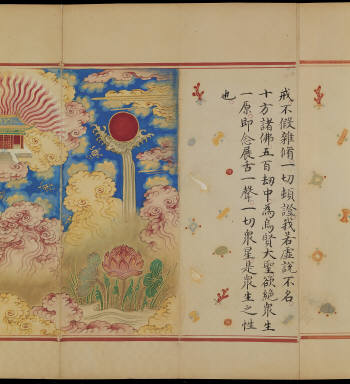 戒不假雜脩一切頓證我若虛說不名
十方諸佛五百劫中為烏賢大聖欲絕眾生
一原即念展舌一聲一切眾星是眾生之性
也